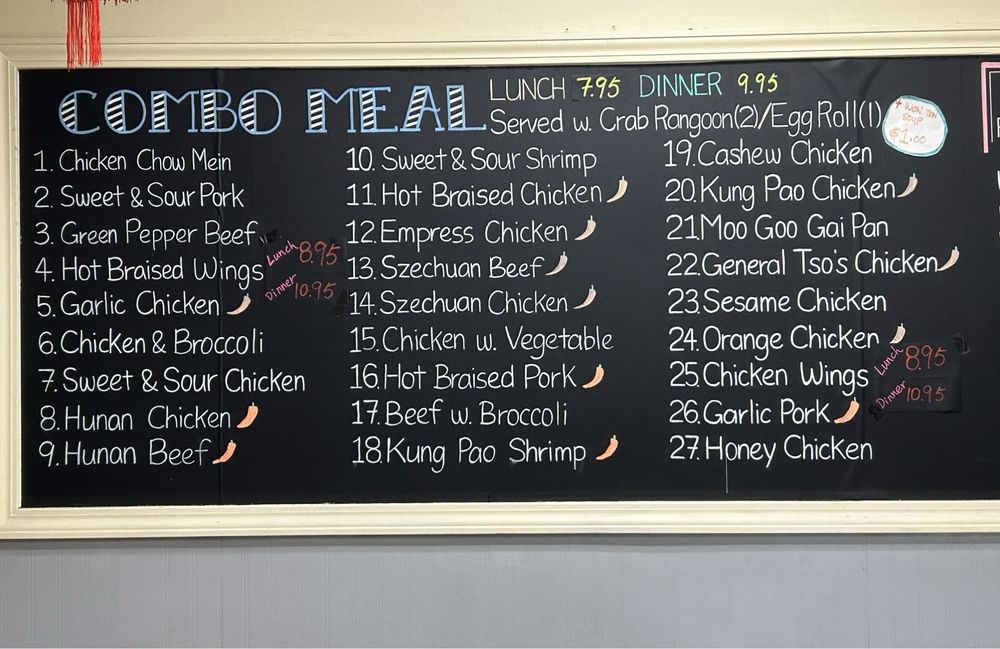 COMBO MEAL
LUNCH 7.95 DINNER 9.95
Served w. Crab Rangoon(2)/Egg Roll(1)
+ WON TON
SOUP
$1.00
1. Chicken Chow Mein
2. Sweet & Sour Pork
3. Green Pepper Beef
4. Hot Braised Wings
Lunch 8.95
Dinner 10.95
5. Garlic Chicken
6. Chicken & Broccoli
7. Sweet & Sour Chicken
8. Hunan Chicken
9. Hunan Beef
10. Sweet & Sour Shrimp
11. Hot Braised Chicken
12. Empress Chicken
13. Szechuan Beef
14. Szechuan Chicken
15. Chicken w. Vegetable
16. Hot Braised Pork
17. Beef w. Broccoli
18. Kung Pao Shrimp
19. Cashew Chicken
20. Kung Pao Chicken
21. Moo Goo Gai Pan
22. General Tso's Chicken
23. Sesame Chicken
24. Orange Chicken
25. Chicken Wings
Lunch 8.95
Dinner 10.95
26. Garlic Pork
27. Honey Chicken